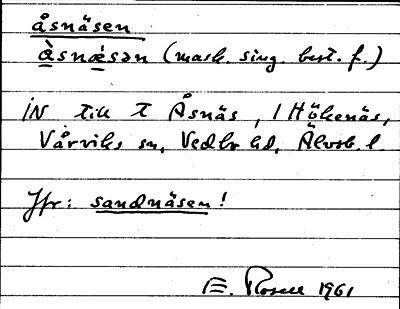 åsnäsen
à̱snæ̱sən (mask. sing. best. f.)
IN till T Åsnäs, i Hökenäs,
Vårviks sn, Vedbo hd, Älvsb. l.
Jfr: sandnäsen!
E. 1961